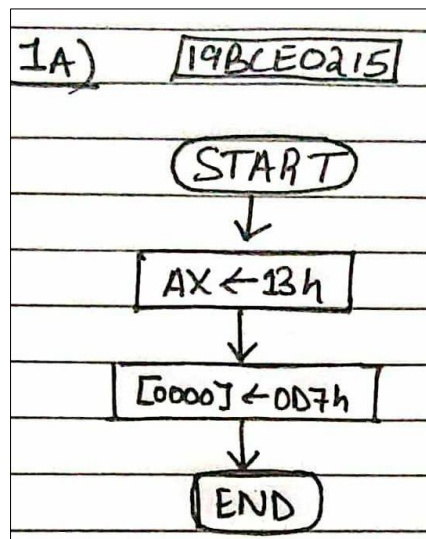 1A) 19BCE0215
START
AX ← 13h
[0000] ← 0D7h
END